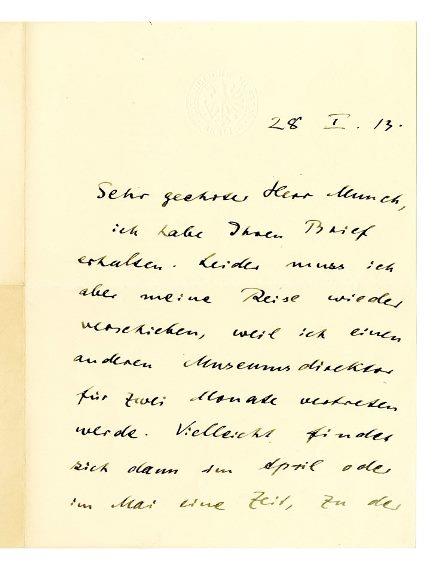 28 I. 13.
Sehr geehrter Herr Munch,
ich habe Ihren Brief
erhalten. Leider muss ich
aber meine Reise wieder
verschieben, weil ich einen
anderen Museumsdirektor
für zwei Monate vertreten
werde. Vielleicht findet
sich dann im April oder
im Mai eine Zeit, zu der